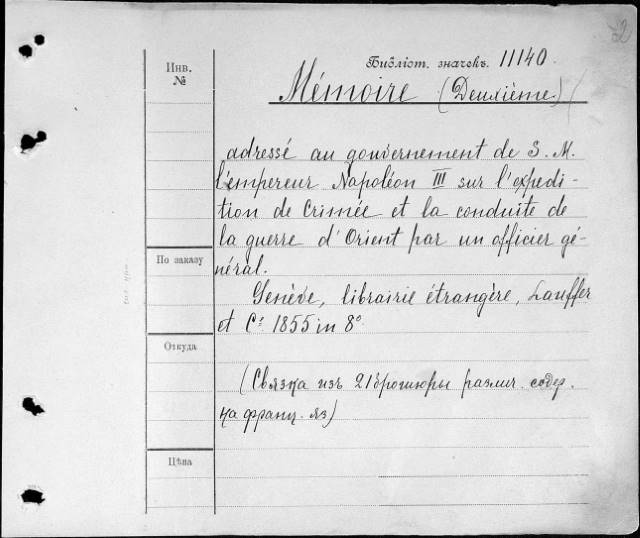 Инв.
№
Библіот. значекъ. 11140.
Mémoire (Deuxième)
adressé au gouvernement de S. M.
l'empereur Napoléon III sur l'expedi-
tion de Crimée et la conduite de
la guerre d'Orient par un officier gé-
néral.
По заказу
Genève, librairie étrangère, Lauffer
et Cⁱᵉ 1855 in 8º
Откуда
(Связка изъ 21 брошюры различ. содер.
на франц. яз)
Цѣна